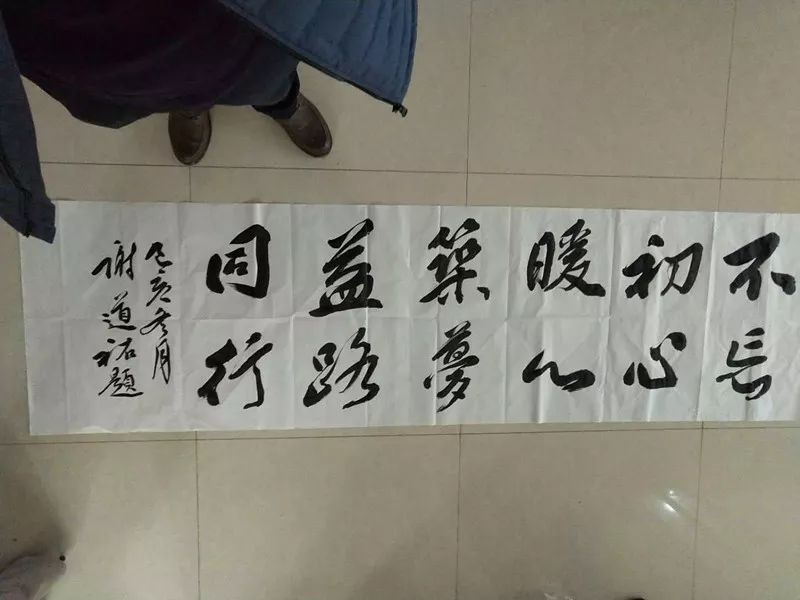 不忘
初心
暖心
築夢
益路
同行
己亥冬月
謝道祐題